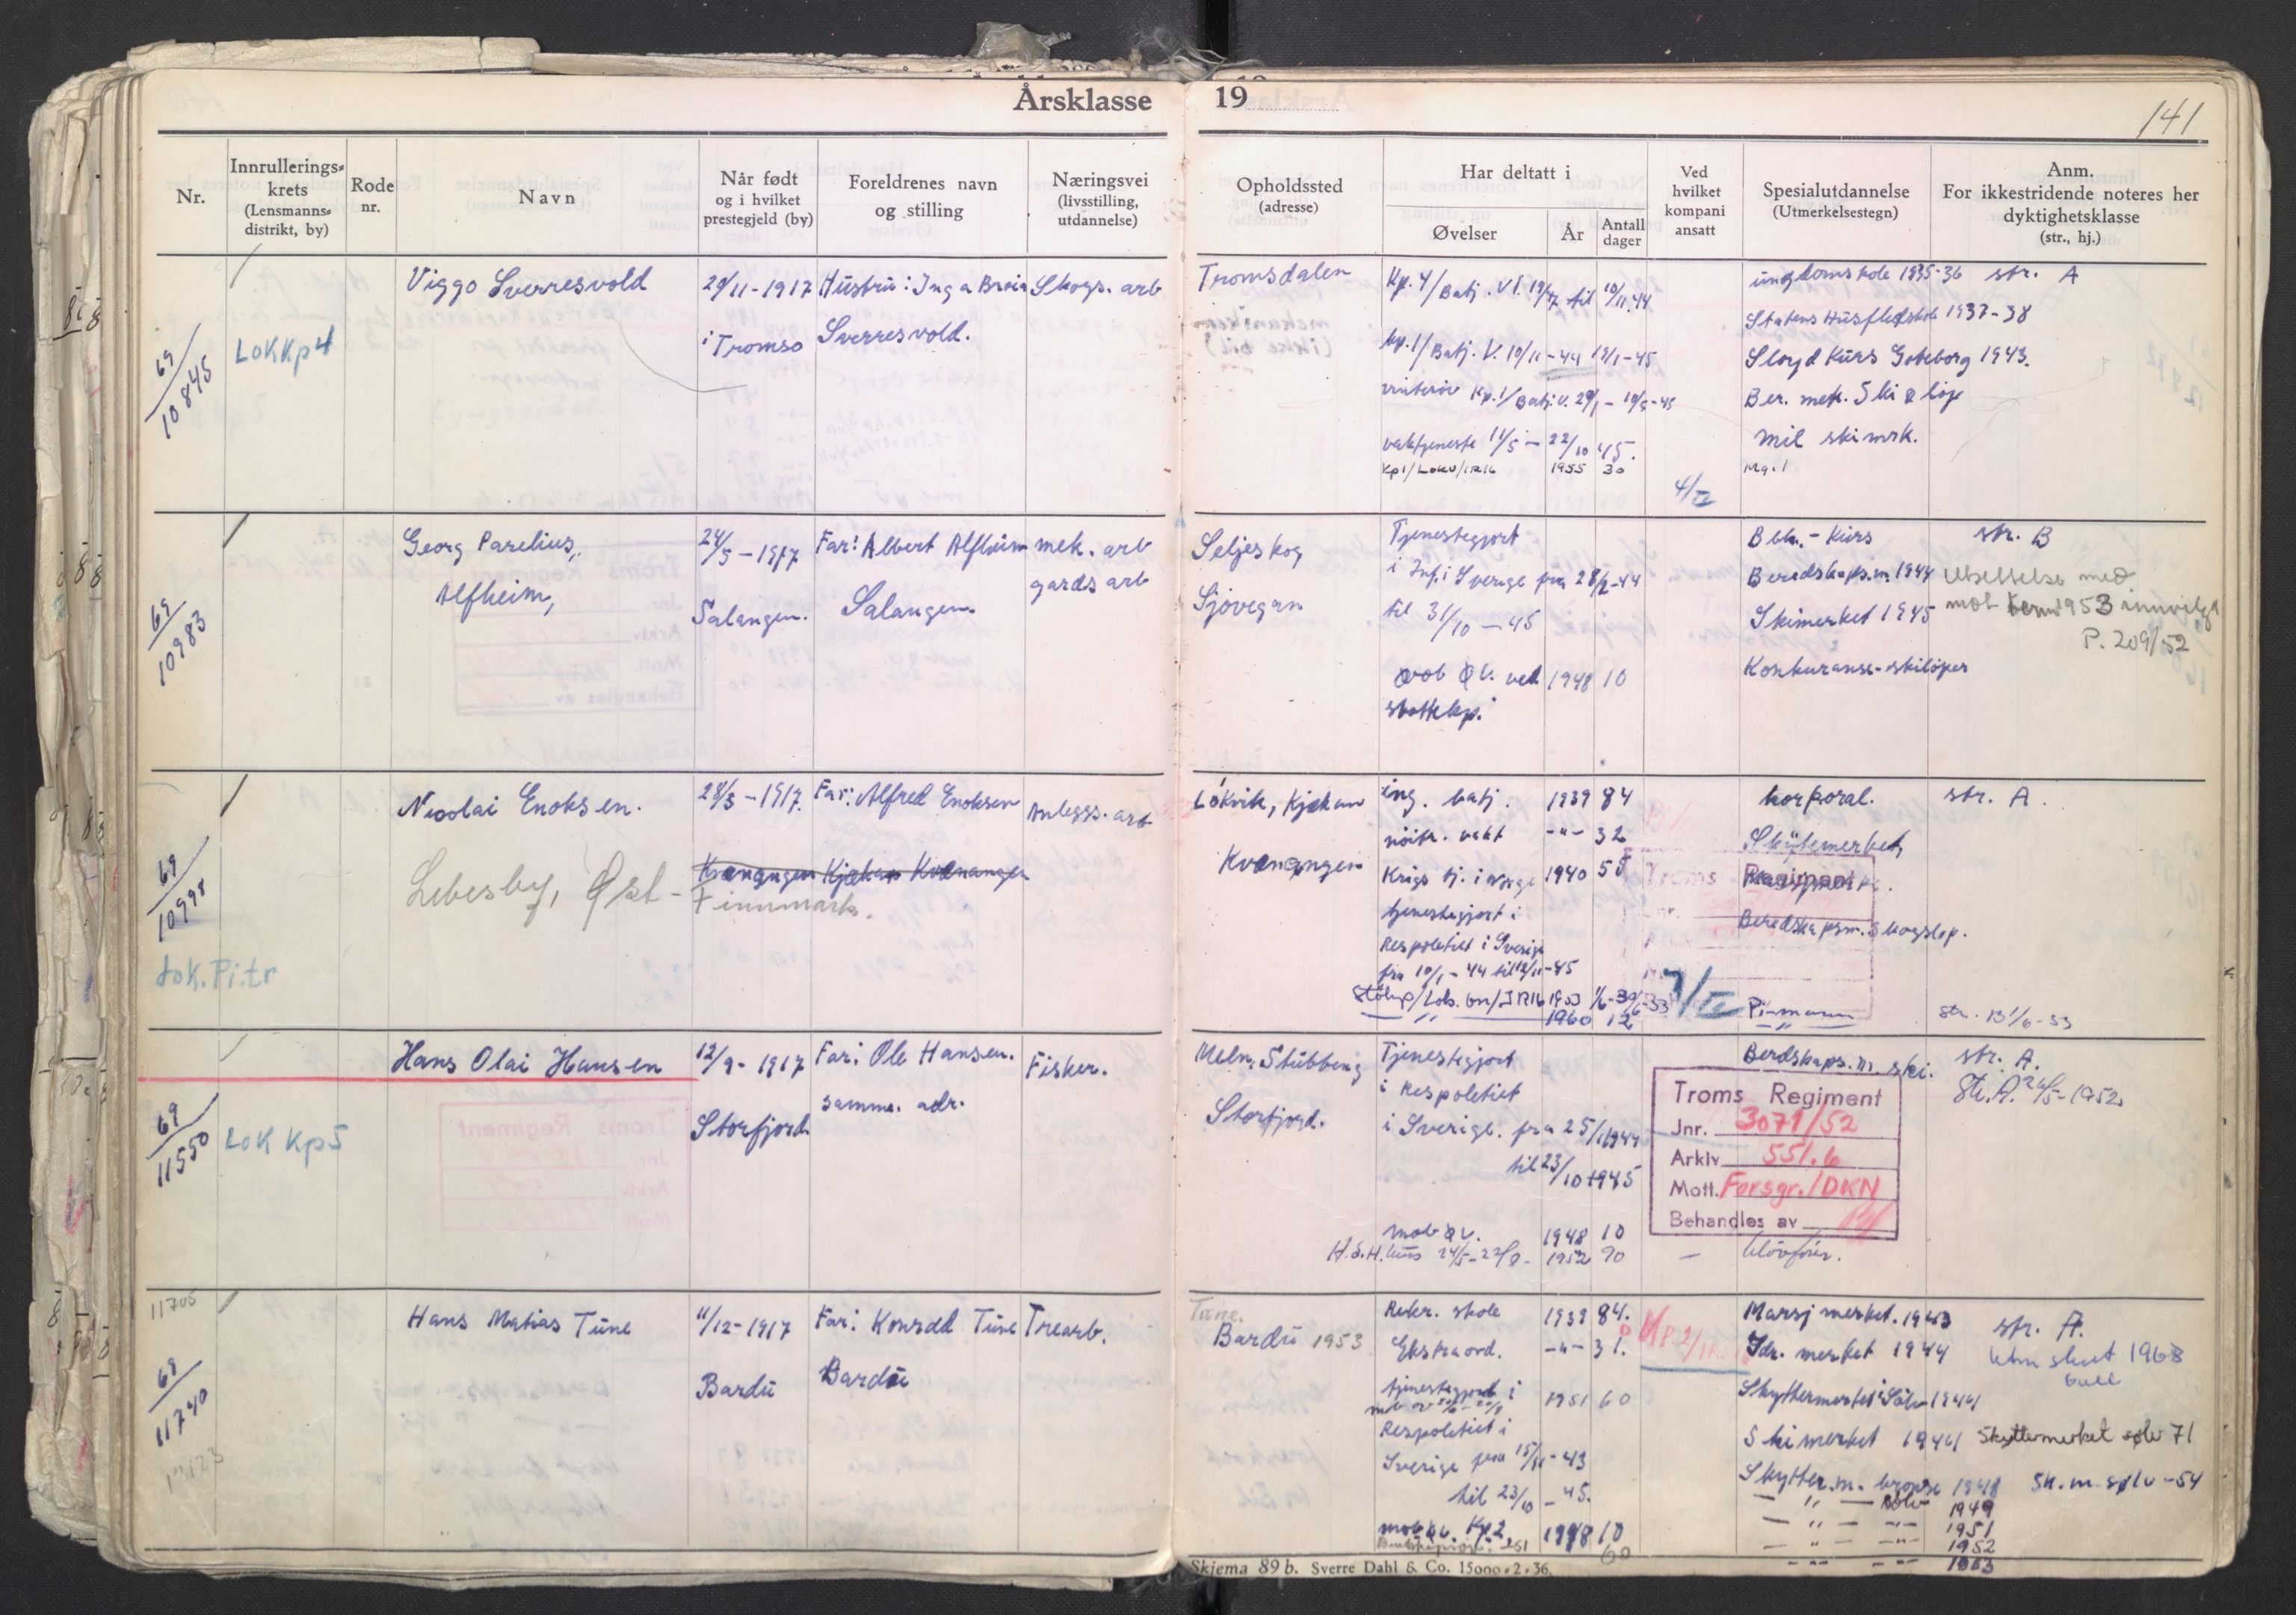 Årsklasse 19
141
Nr.
Innrullerings-
krets
(Lensmanns-
distrikt, by)
Rode
nr.
Navn
Når født
og i hvilket
prestegjeld (by)
Foreldrenes navn
og stilling
Næringsvei
(livsstilling,
utdannelse)
Opholdssted
(adresse)
Har deltatt i
Øvelser
År
Antall
dager
Ved
hvilket
kompani
ansatt
Spesialutdannelse
(Utmerkelsestegn)
Anm.
For ikkestridende noteres her
dyktighetsklasse
(str., hj.)
69/10845
LoKKp4
Viggo Sverresvold
29/11-1917
i Tromsø
Hustru: Inga
Sverresvold.
Skogs. arb
Tromsdalen
Kp. 4/Batj. VI. til 10/11.44
kp. 1/Batj. V. 10/11-44
Kp. 1/Batj. V.
vakttjeneste 11/5 - 22/10 45.
Kp1/LoKv/IR16 1955 30
4/IV
ungdomskole 1935-36
Statens Husflidskole 1937-38
Sløyd Kurs Gøteborg 1943.
Ber. merk. Ski & løp
mil skimrk.
Mg. 1
str. A
69/10983
Georg Parelius,
Alfheim,
24/5-1917
Salangen.
Far: Albert Alfheim
Salangen.
mek. arb
gards arb
Seljeskog
Sjøvegan
Tjenestegjort
i Inf. i Sverige fra 28/2-44
til 31/10-45
ved 1948 10
støttekp.
Bbh.- Kurs
Beredskaps.m. 1944
Skimerket 1945
Konkuranse-skiløper
str. B
Utsettelse med
mob 1953 innvilg
P. 209/52
69/10995
Lok. Pi.tr
Nicolai Enoksen.
Lebesby, Øst-
Finnmark.
28/3-1917.
Kvænangen Kjækan Kvænangen
Far: Alfred Enoksen
Anleggs. arb
Løkvik, Kjækan
Kvænangen
ing. batj. 1939 84
nøitr. vakt -"- 32
Krigs tj. i Norge 1940 55
tjenestegjort i
Respolitiet i Sverige
fra 10/1-44 til 12/11-45
Støkp/Lok. bn/IR16 1953 1/6-30/6-53
" 1960 12
7/IV
korporal.
Skytemerket,
Troms Regiment
Beredskapsm. Skogsløp.
Pi-mann
"
str. A.
Str. B 1/6-53
69/11550
LoK Kp5
Hans Olai Hansen
12/9-1917
Storfjord
Far: Ole Hansen.
samme. adr.
Fisker.
Meln. Stubbeng
Storfjord.
Tjenestegjort
i Respolitiet
i Sverige. fra 25/1 1944
til 23/10 1945
mob øv. 1948 10
H.S.H. kurs 24/5-22/8- 1952 90
-
Berdskaps. m. ski.
Troms Regiment
Jnr. 3071/52
Arkiv 551.6
Mott. Forsgr./DKN
Behandles av
kløvfør.
str. A.
Str. A. 24/5-1952
11705
69/11740
Hans Matias Tune
11/12-1917
Bardu
Far: Konrad Tune
Bardu
Trearb.
Tune.
Bardu 1953
Rekr. skole 1939 84.
Ekstraord. -"- 31.
tjenestegjort i 1951 60
Respolitiet i
Sverige fra 15/11-43
til 23/10-45.
mob øv. Kp2 1948 10
60
Kp 2/IR.
Marsj merket. 1943
Idr. merket 1944
Skyttermerket i Sølv 1944
Skimerket 1944
Skytter.m. bronse 1948
- " - sølv 1949
- " - -"- 1951
- " - -"- 1952
- " - -"- 1953
str. A.
Utm skut 1968
Gull
Skyttermerket sølv 71
Sk.m. sølv -54
Skjema 89 b. Sverre Dahl & Co. 15000.2.36.